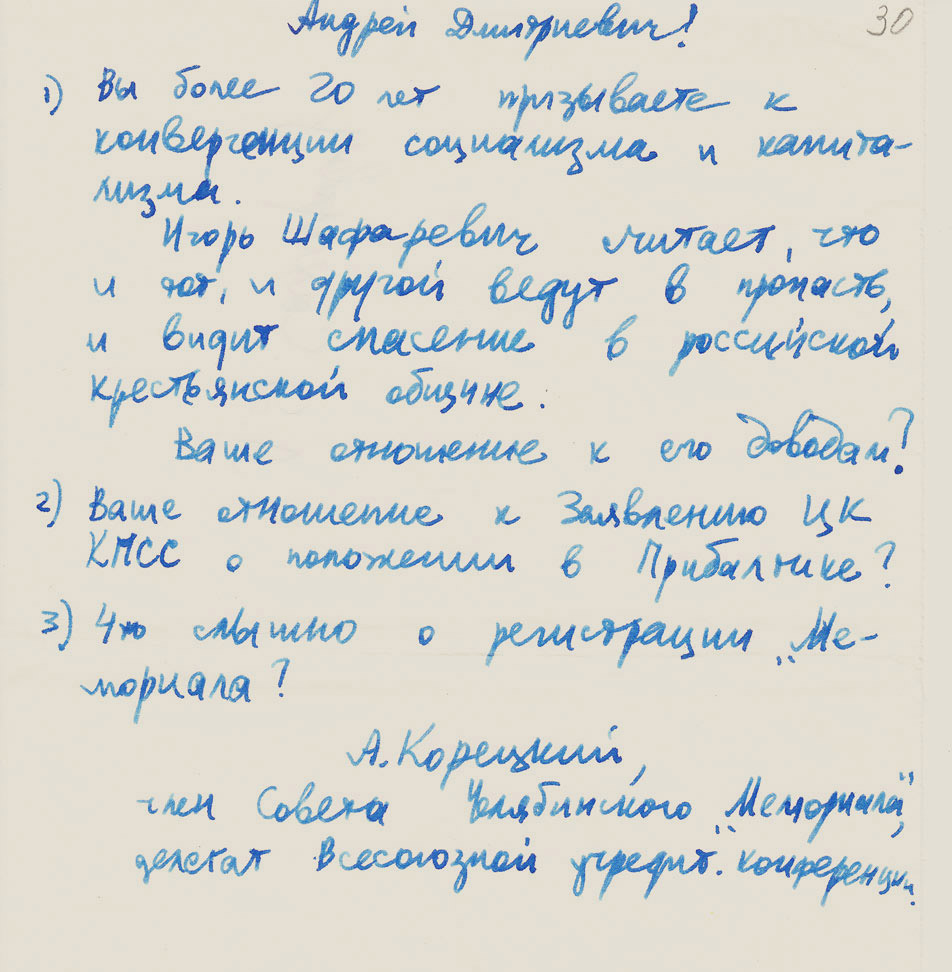 30
Андрей Дмитриевич!
1) Вы более 20 лет призываете к
конвергенции социализма и капита-
лизма.
Игорь Шафаревич считает, что
и тот, и другой ведут в пропасть,
и видит спасение в российской
крестьянской общине.
Ваше отношение к его доводам?
2) Ваше отношение к Заявлению ЦК
КПСС о положении в Прибалтике?
3) Что слышно о регистрации „Ме-
мориала?
А. Корецкий,
член Совета Челябинского „Мемориала",
делегат Всесоюзной учредит. конференции.